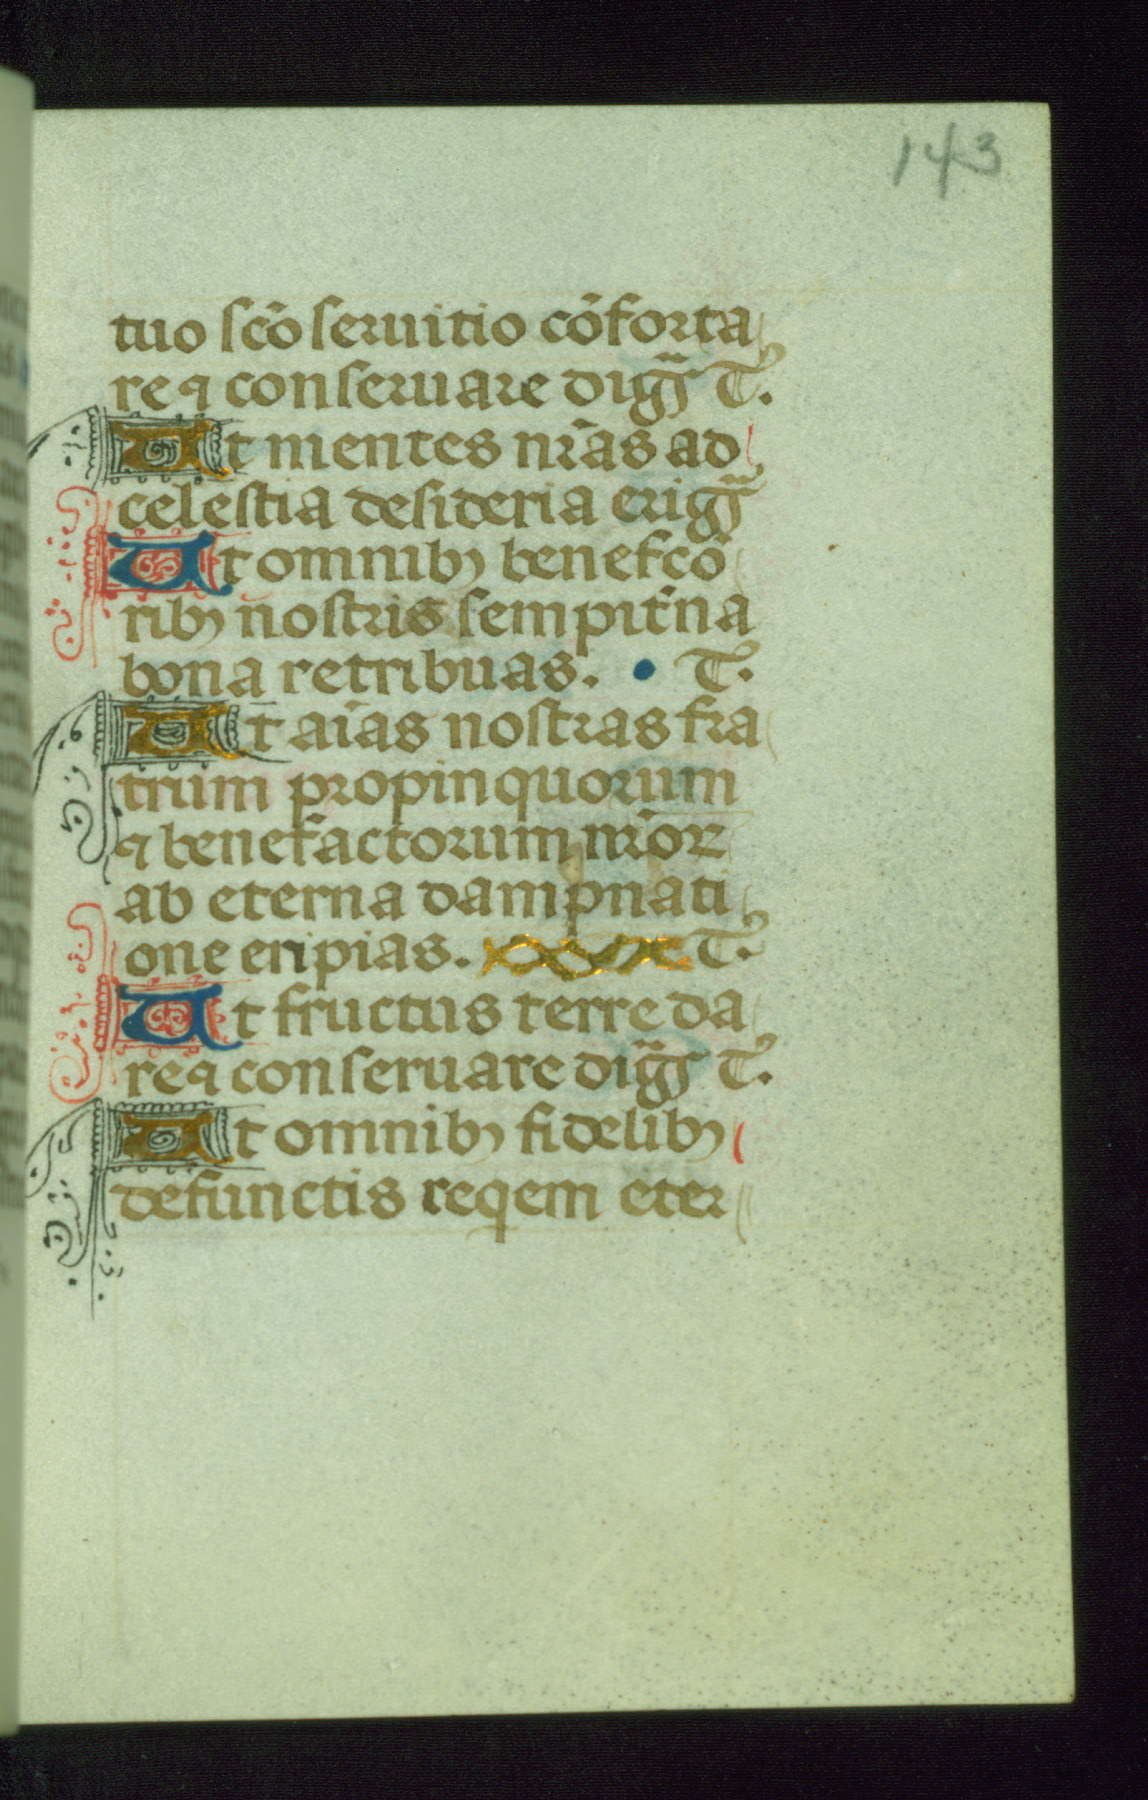 143
tuo scō seruitio cōforta
re ⁊ conseruare dig̃r̃ T.
Ut mentes nr̄as ad
celestia desideria erig̃r̃
Ut omnibꝯ benefcō
ribꝯ nostris sempit̄na
bona retribuas. T.
Ut aīas nostras fra
trum propinquorum
⁊ benefactorum nr̄oꝝ
ab eterna dampnati
one eripias. T.
Ut fructus terre da
re ⁊ conseruare dig̃r̃ T.
Ut omnibꝯ fidelibꝯ
defunctis reqem eter